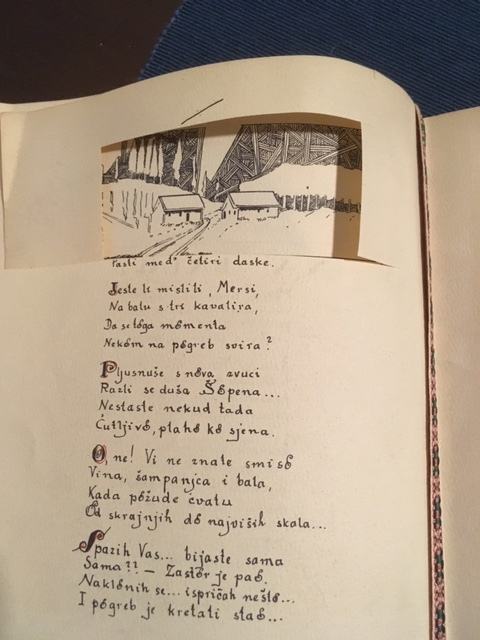 Pasti med' četiri daske.
Jeste li mislili, Mersi,
Na balu s tri kavalira,
Da se toga momenta
Nekom na pogreb svira?
Pljusnuše snova zvuci
Razli se duša Šopena...
Nestaste nekud tada
Ćutljivo, plaho ko sjena.
O, ne! Vi ne znate smiso
Vina, šampanjca i bala,
Kada požude cvatu
Od skrajnjih do najviših skala...
Spazih Vas... bijaste sama
Sama?? — Zastor je pao.
Naklonih se... ispričah nešto...
I pogreb je kretati stao...